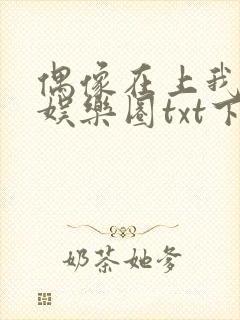 偶像在上我
娱乐圈txt下
奶茶她爹